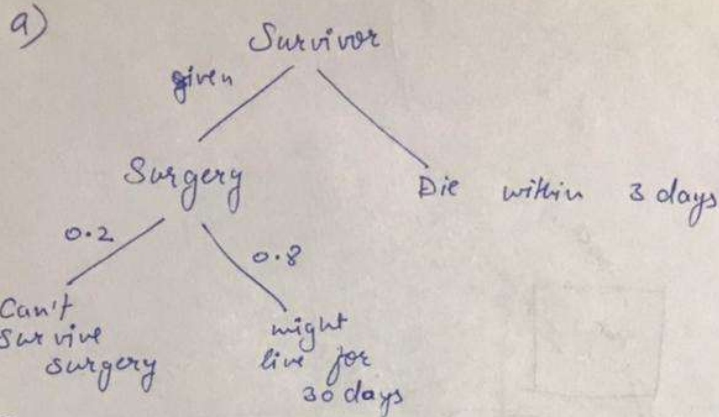 a)
Survivor
given
Surgery
Die within 3 days
0.2
0.8
Can't
survive
surgery
might
live for
30 days